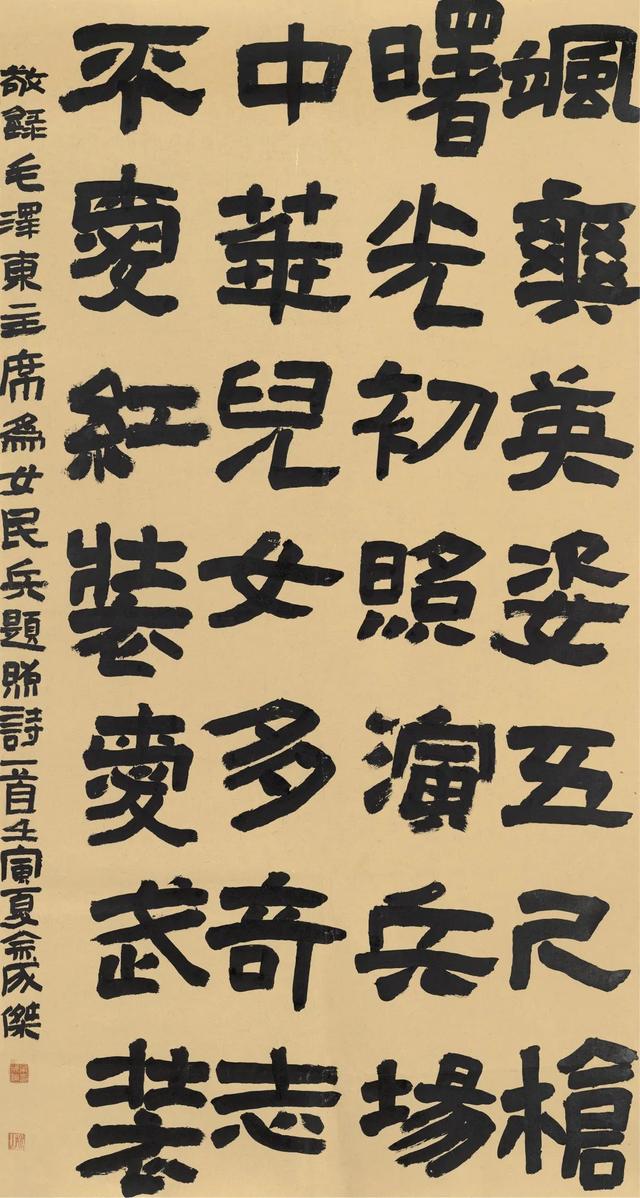 颯爽英姿五尺槍
曙光初照演兵場
中華兒女多奇志
不愛紅裝愛武裝
敬錄毛澤東主席爲女民兵題照詩一首壬寅夏余成傑